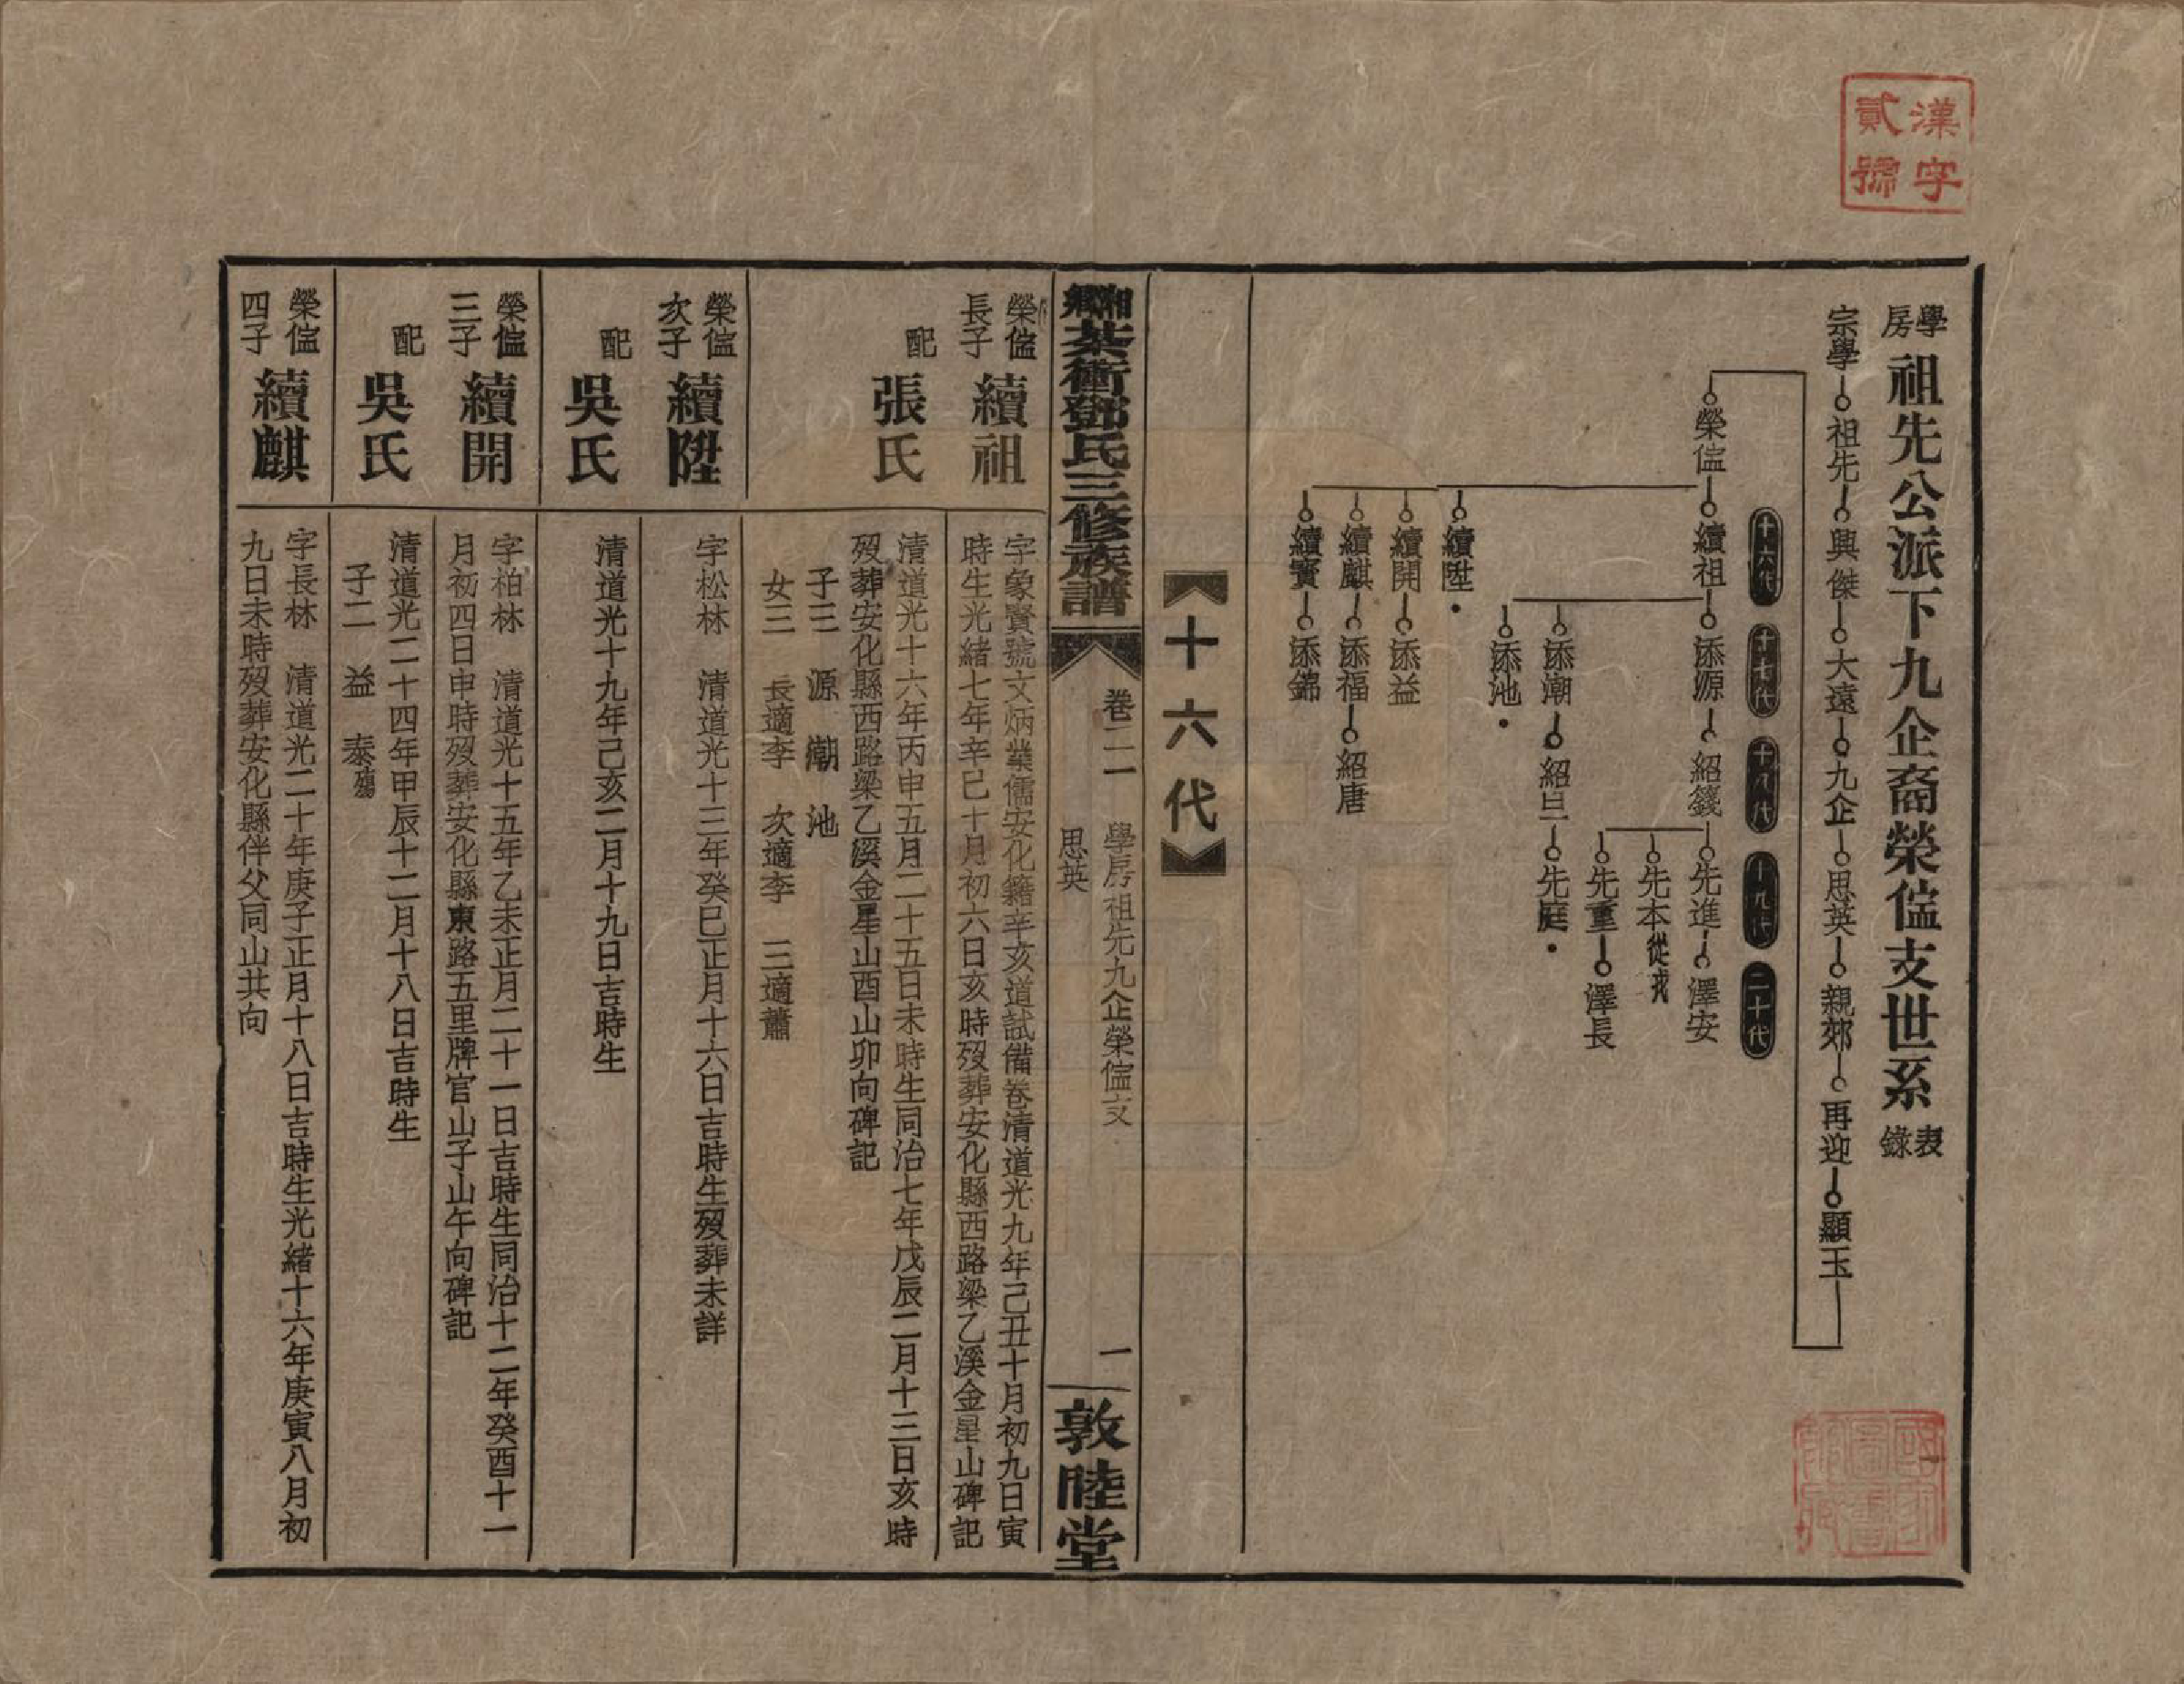 漢字
貳號
學房祖先公派下九企裔榮㑌支世系表錄
宗學 祖先 興傑 大遠 九企 思英 親郊 再迎 顯玉
十六代 十七代 十八代 十九代 二十代
榮㑌 續祖 添源 紹籛 先進 澤安
先本從戎
先重 澤長
添潮 紹旦 先庭
添池
續陞
續開 添益
續麒 添福 紹唐
續寶 添錦
十六代
湘鄉茶衝鄧氏三修族譜
卷二 學房祖先九企榮㑌支
思英
一
敦睦堂
榮㑌長子 續祖
字象賢號文炳業儒安化籍辛亥道試備卷清道光九年己丑十月初九日寅
時生光緒七年辛巳十月初六日亥時歿葬安化縣西路梁乙溪金星山碑記
配 張氏
清道光十六年丙申五月二十五日未時生同治七年戊辰二月十三日亥時
歿葬安化縣西路梁乙溪金星山酉山卯向碑記
子三 源 潮 池
女三 長適李 次適李 三適蕭
榮㑌次子 續陞
字松林 清道光十三年癸巳正月十六日吉時生歿葬未詳
配 吳氏
清道光十九年己亥二月十九日吉時生
榮㑌三子 續開
字柏林 清道光十五年乙未正月二十一日吉時生同治十二年癸酉十一
月初四日申時歿葬安化縣東路五里牌官山子山午向碑記
配 吳氏
清道光二十四年甲辰十二月十八日吉時生
子二 益 泰殤
榮㑌四子 續麒
字長林 清道光二十年庚子正月十八日吉時生光緒十六年庚寅八月初
九日未時歿葬安化縣伴父同山共向